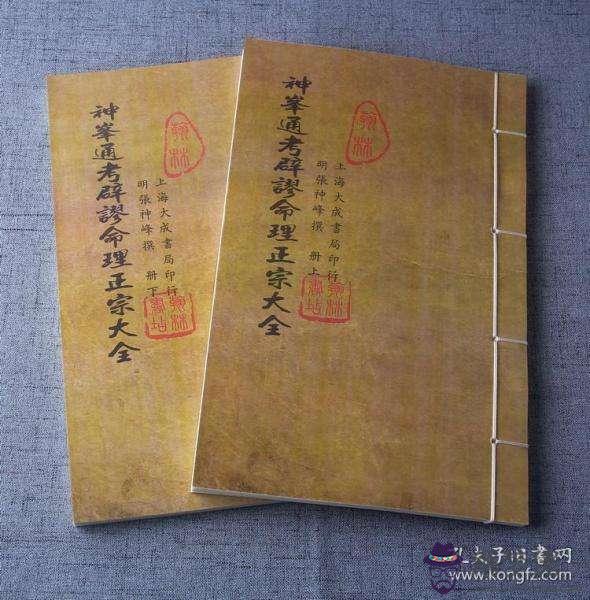 神峯通考辟謬命理正宗大全
上海大成書局印行
明張神峰撰 册下
神峯通考辟謬命理正宗大全
上海大成書局印行
明張神峰撰 册上
孔夫子旧書网
www.kongfz.com